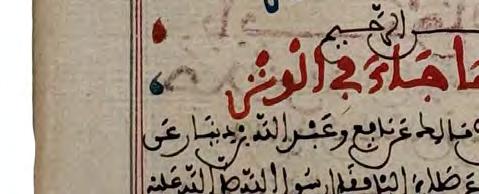 الرحيم
ما جاء في الوتر
مالك عن نافع وعبد الله بن دينار عن
صلاة اليل فقال رسول الله صلى الله عليه